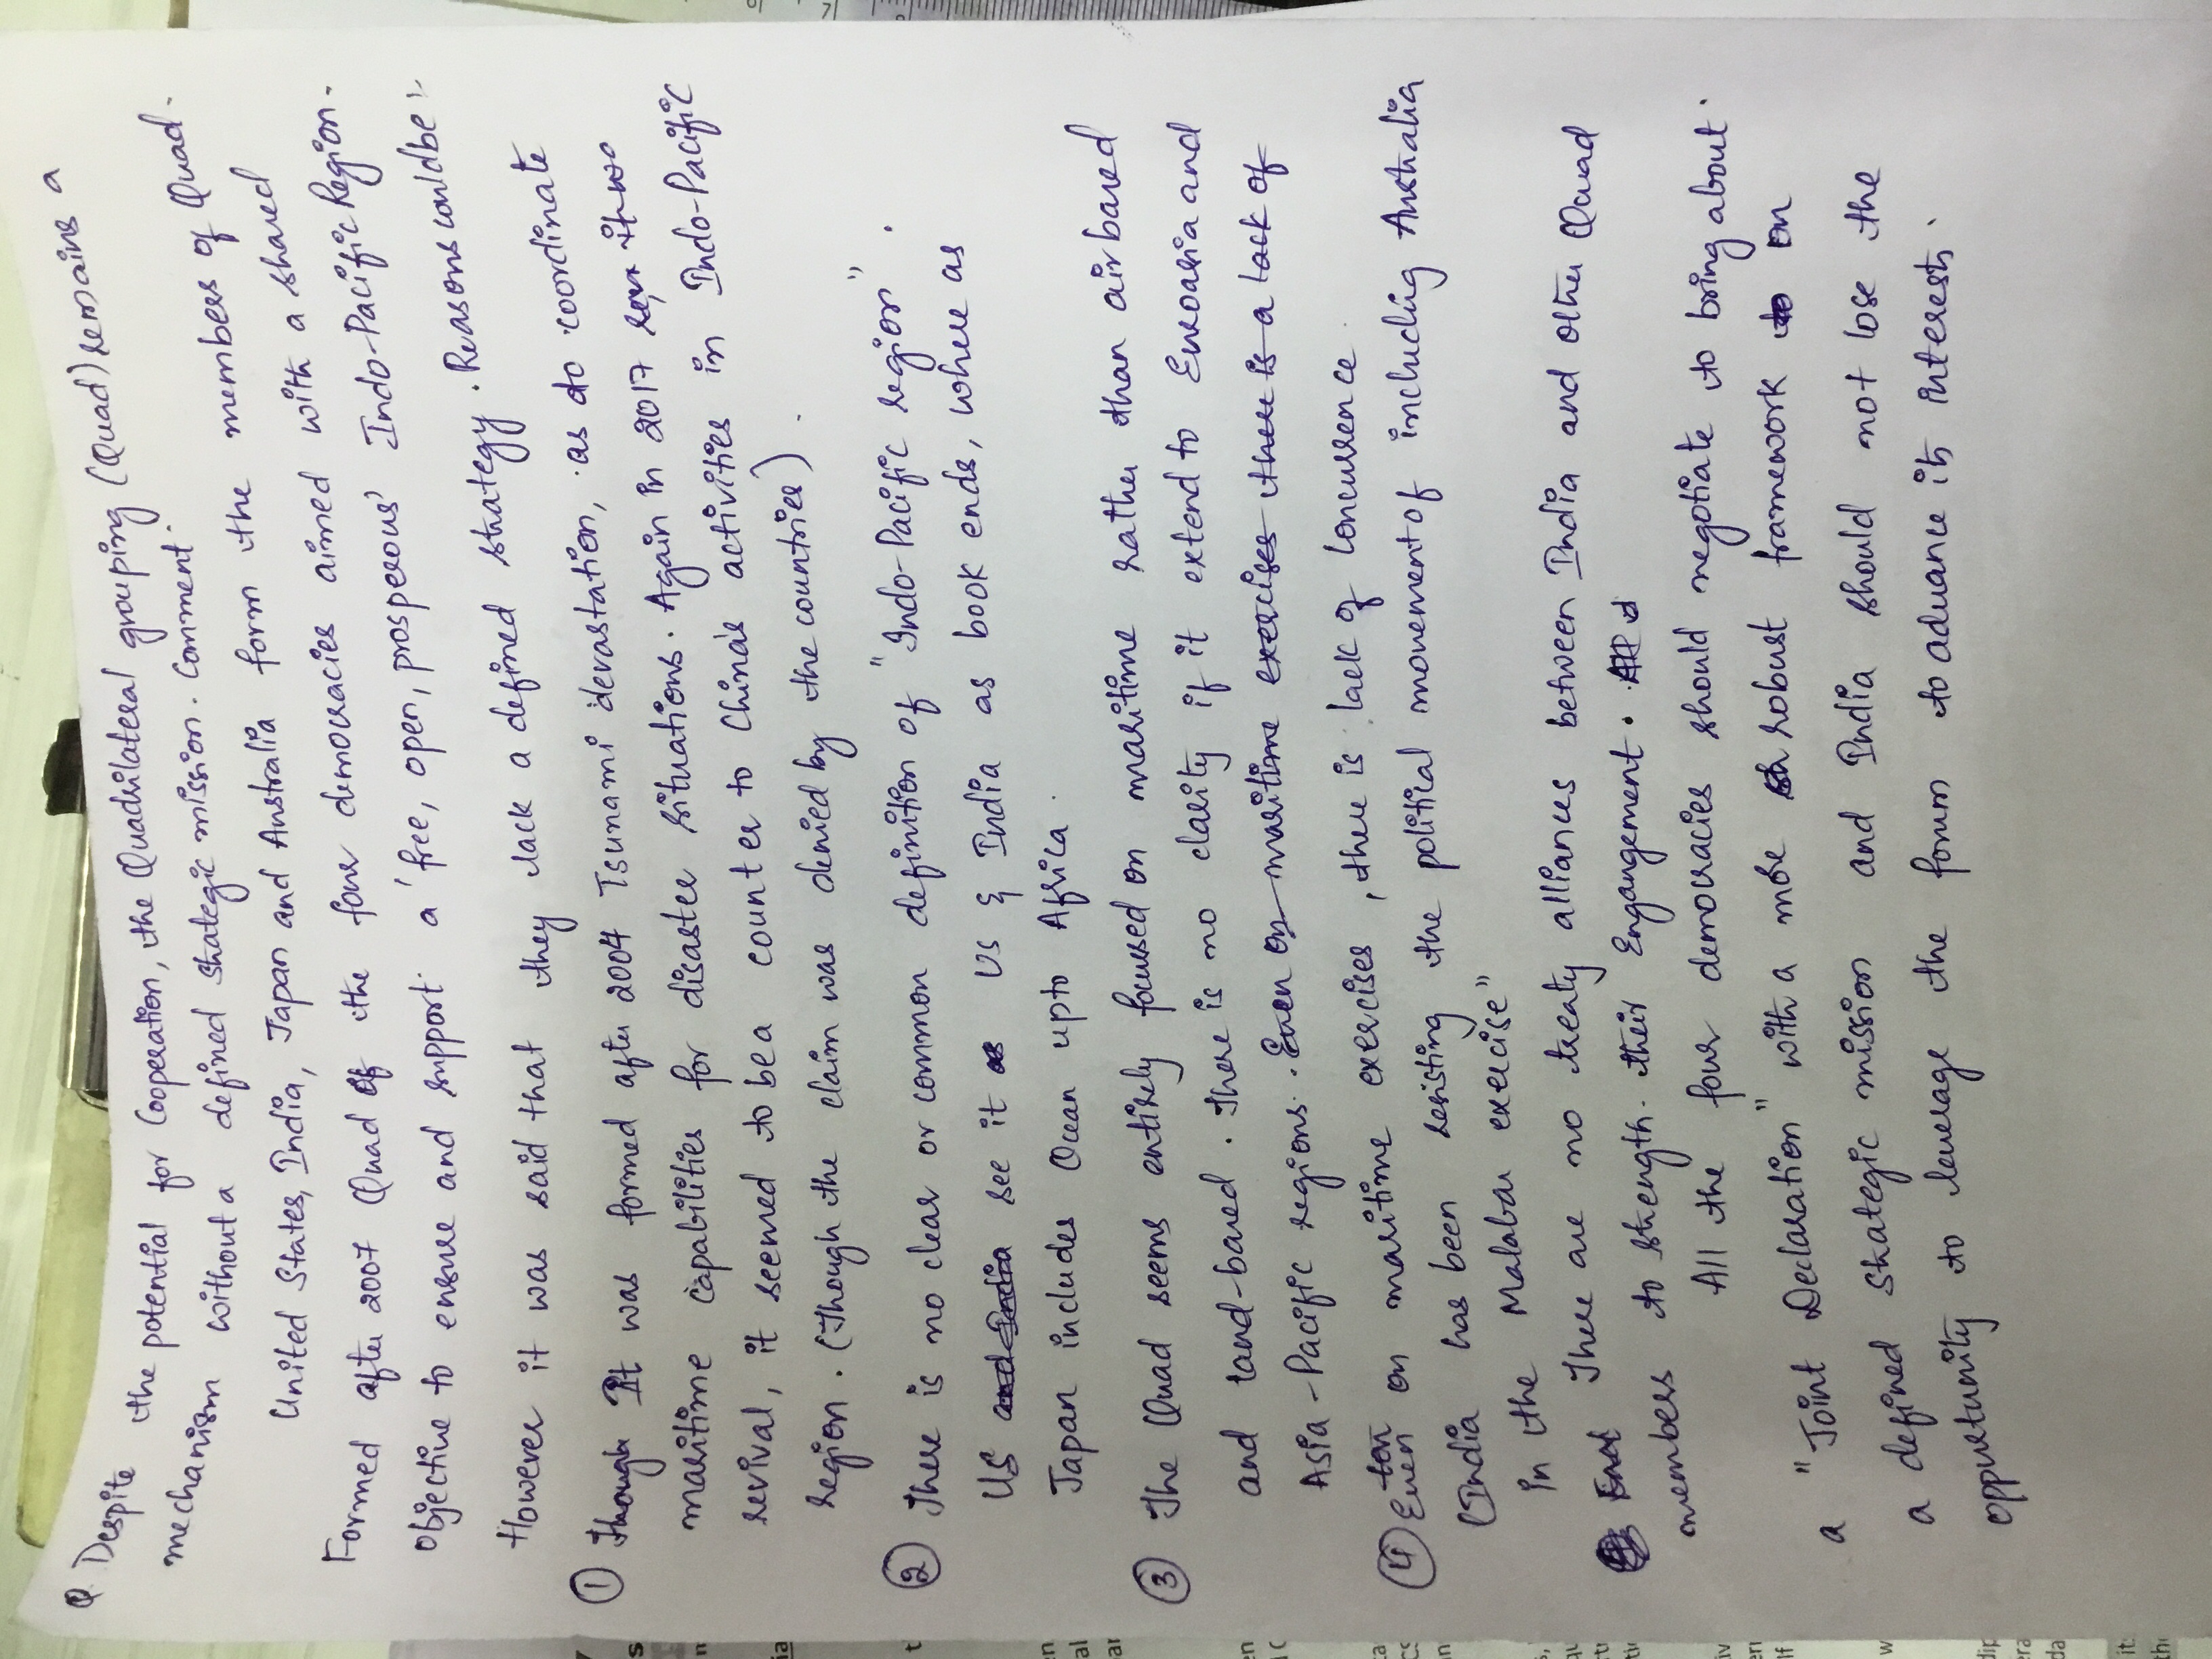 Q. Despite the potential for Cooperation, the Quadilateral grouping (Quad) remains a
mechanism without a defined strategic mission. Comment.
United States, India, Japan and Australia form the members of Quad.
Formed after 2007 Quad of the four democracies aimed with a shared
objective to ensure and support a 'free, open, prosperous' Indo-Pacific Region.
However it was said that they lack a defined strategy. Reasons couldbe:
① Though It was formed after 2004 Tsunami devastation, as to coordinate
maritime capabilities for disaster situations. Again in 2017
revival, it seemed to be a counter to China's activities in Indo-Pacific
region. (Though the claim was denied by the countries).
② There is no clear or common definition of "Indo-Pacific region".
US and India see it US & India as book ends, where as
Japan includes Ocean upto Africa.
③ The Quad seems entirely focused on maritime rather than air based
and land-based. There is no clarity if it extend to Euroasia and
Asia-Pacific regions. Even on maritime exercises there is a lack of
④ Even on maritime exercises, there is lack of concurrence.
(India has been resisting the political movement of including Australia
in the Malabar exercise"
There are no treaty alliances between India and other Quad
members to strength their Engangement.
All the four democracies should negotiate to bring about
a "Joint Declaration" with a more robust framework on
a defined strategic mission and India should not lose the
oppuretunity to leverage the forum to advance its interests.